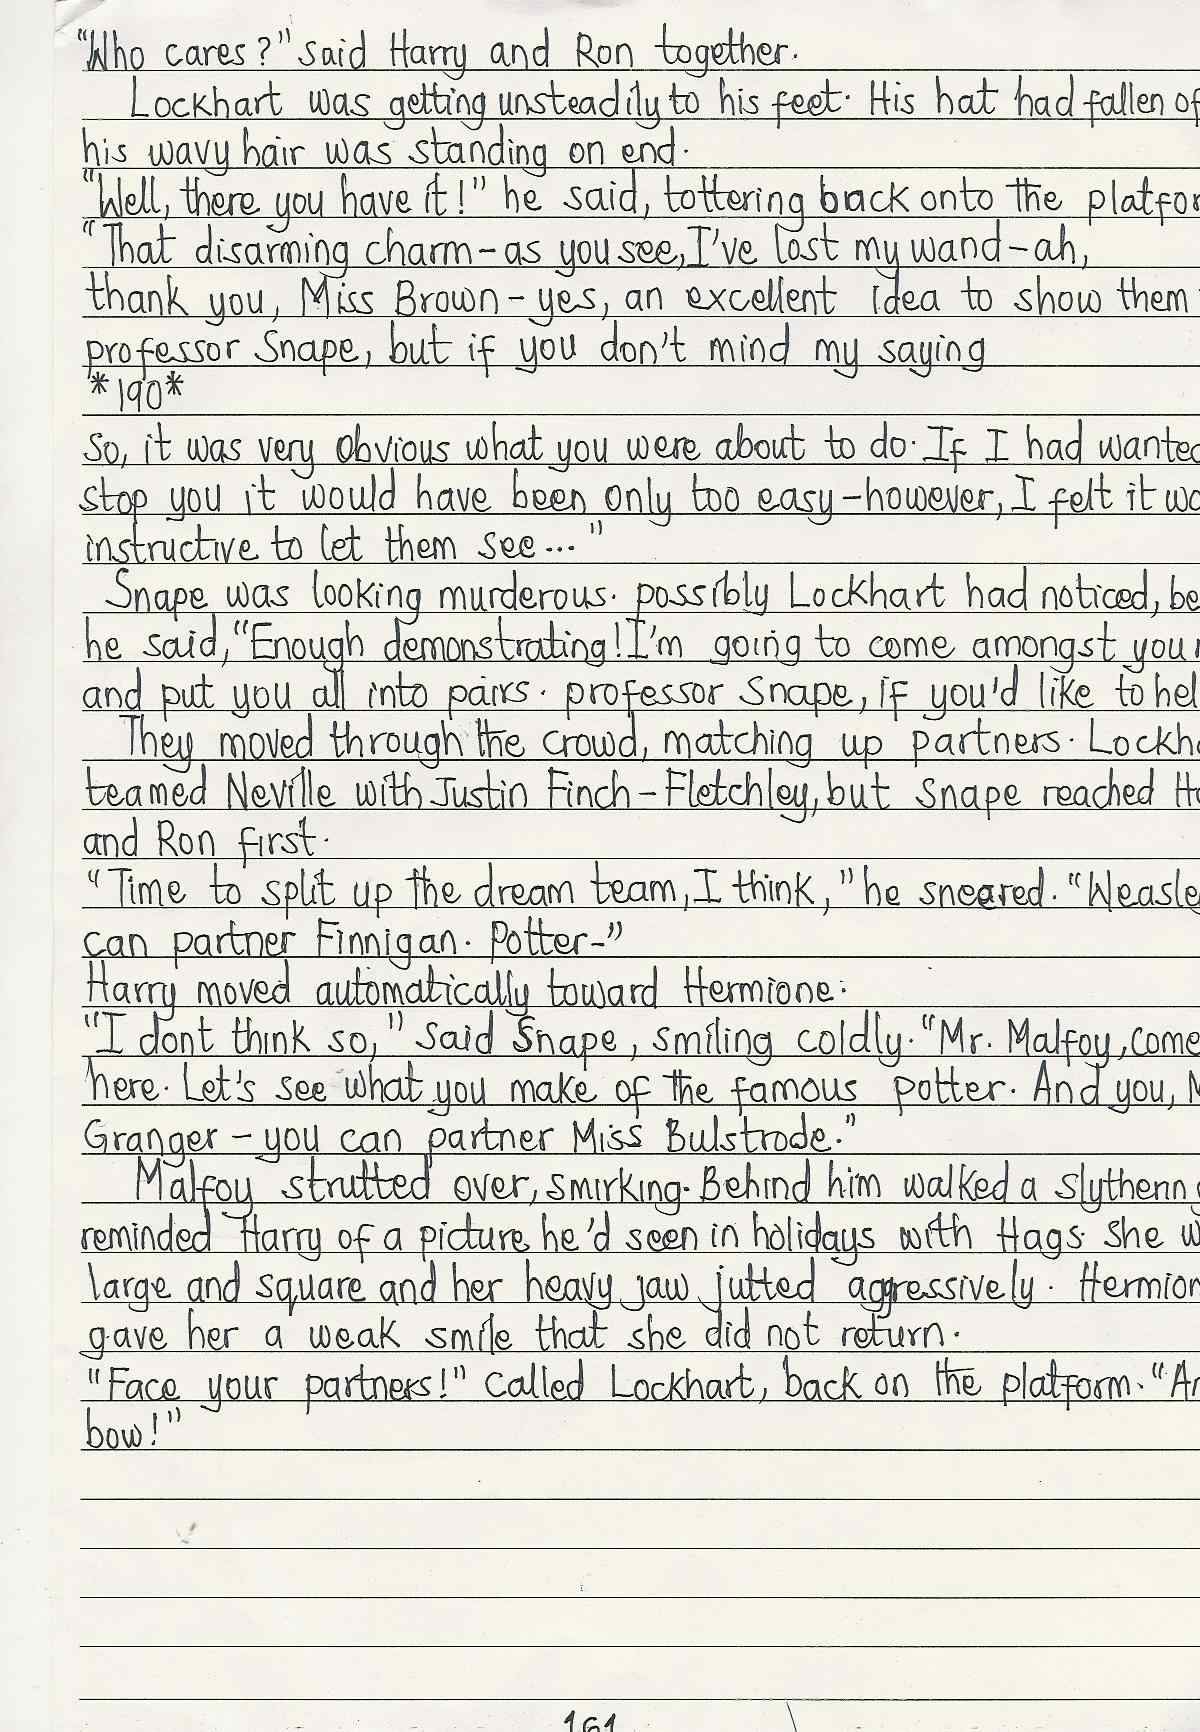 "Who cares?" said Harry and Ron together.
Lockhart was getting unsteadily to his feet. His hat had fallen of
his wavy hair was standing on end.
"Well, there you have it!" he said, tottering back onto the platfor
"That disarming charm-as you see, I've lost my wand-ah,
thank you, Miss Brown-yes, an excellent idea to show them
professor Snape, but if you don't mind my saying
*190*
so, it was very obvious what you were about to do. If I had wanted
stop you it would have been only too easy-however, I felt it wo
instructive to let them see..."
Snape was looking murderous. possibly Lockhart had noticed, be
he said, "Enough demonstrating! I'm going to come amongst you
and put you all into pairs. professor Snape, if you'd like to hel
They moved through the crowd, matching up partners. Lockha
teamed Neville with Justin Finch-Fletchley, but Snape reached Ha
and Ron first.
"Time to split up the dream team, I think," he sneered. "Weasle
can partner Finnigan. Potter-"
Harry moved automatically toward Hermione.
"I dont think so," said Snape, smiling coldly. "Mr. Malfoy, come
here. Let's see what you make of the famous potter. And you, M
Granger - you can partner Miss Bulstrode."
Malfoy strutted over, smirking. Behind him walked a slytherin g
reminded Harry of a picture he'd seen in holidays with Hags. She w
large and square and her heavy jaw jutted aggressively. Hermion
gave her a weak smile that she did not return.
"Face your partners!" called Lockhart, back on the platform. "An
bow!"
161